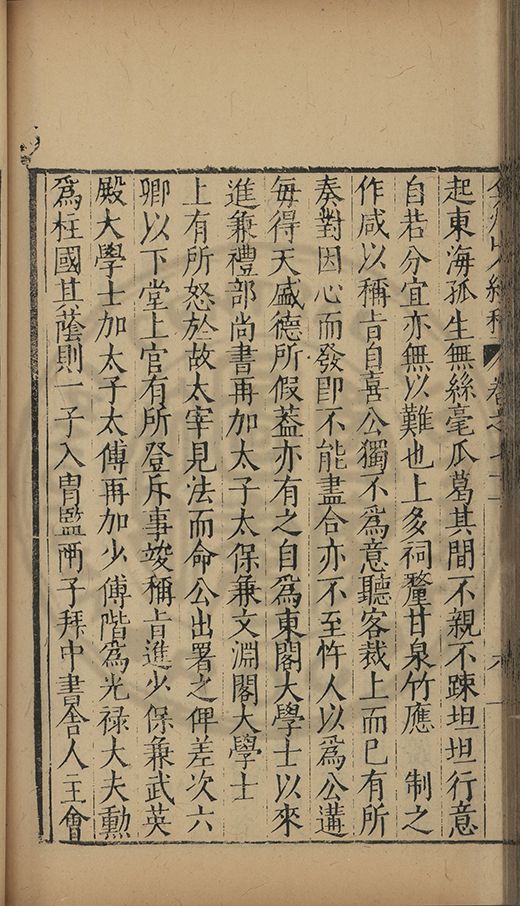 起東海孤生無絲毫瓜葛其間不親不踈坦坦行意
自若分宜亦無以難也上多祠釐甘泉竹應 制之
作咸以稱旨自喜公獨不爲意聽客裁上而已有所
奏對因心而發即不能盡合亦不至忤人以爲公遘
每得天盛德所假葢亦有之自爲東閣大學士以來
進兼禮部尚書再加太子太保兼文淵閣大學士
上有所怒於故太宰見法而命公出署之俾差次六
卿以下堂上官有所登斥事竣稱旨進少保兼武英
殿大學士加太子太傅再加少傅階爲光禄大夫勲
爲柱國其蔭則一子入胄監兩子拜中書舍人主會